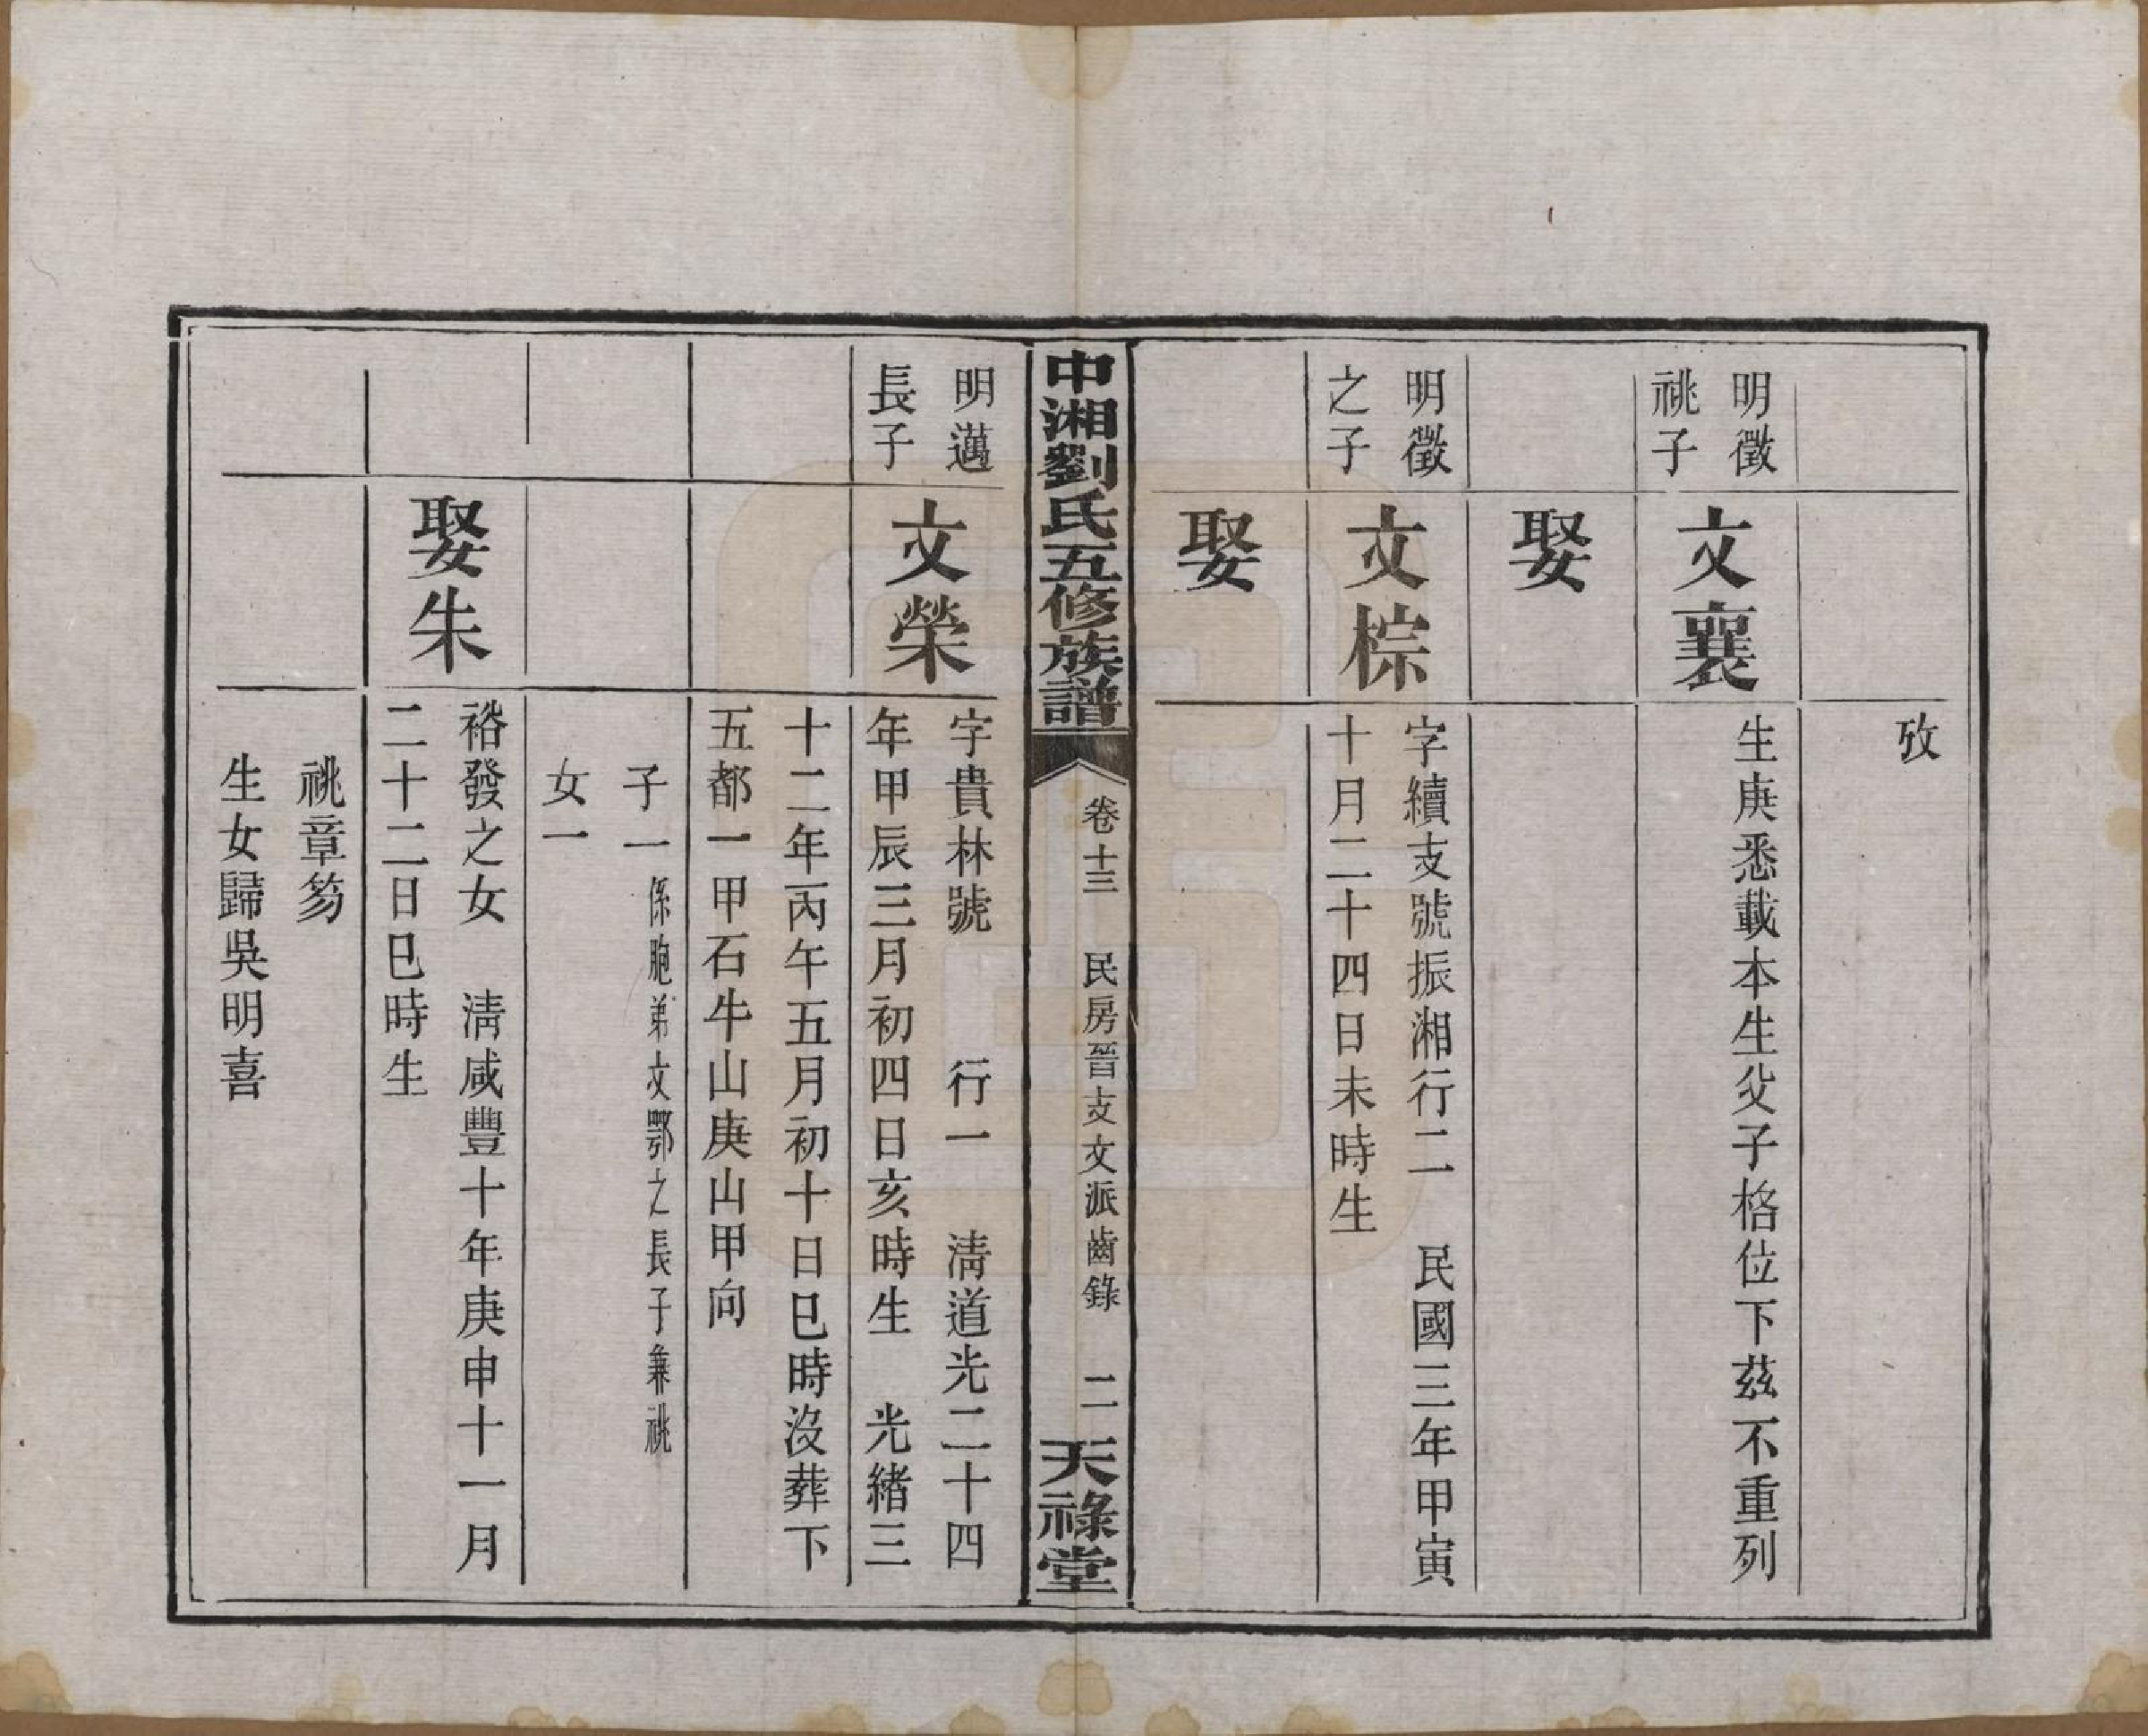 攷
明徵
祧子
文襄
生庚悉載本生父子格位下茲不重列
娶
明徵
之子
文棕
字續支號振湘行二 民國三年甲寅
十月二十四日未時生
娶
中湘劉氏五修族譜 卷十三 民房晉支文派齒錄 二 天祿堂
明邁
長子
文榮
字貴林號 行一 淸道光二十四
年甲辰三月初四日亥時生 光緒三
十二年丙午五月初十日巳時沒葬下
五都一甲石牛山庚山甲向
子一係胞弟文鄂之長子兼祧
女一
娶朱
裕發之女 淸咸豐十年庚申十一月
二十二日巳時生
祧章笏
生女歸吳明喜